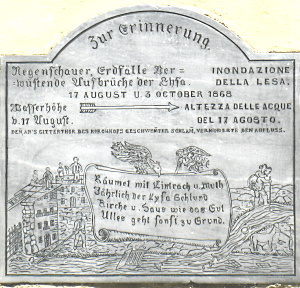 Zur Erinnerung.
Regenschauer, Erdfälle Ver=
wüstende Aufbrüche der Lysa.
INONDAZIONE
DELLA LESA.
17 AUGUST U. 3 OCTOBER 1868
Wasserhöhe
b. 17 August.
ALTEZZA DELLE ACQUE
DEL 17 AGOSTO.
DER AN'S GITTERTHOR DES KIRCHHOFS GESCHWEMTE SCHLAM, VERMINDERTE DEN AUSFLUSS.
Räumet mit Eintrach u. Muth
Jährlich der Lysa Schlund
Kirche u. Haus wie das Gut
Alles geht sonst zu Grund.